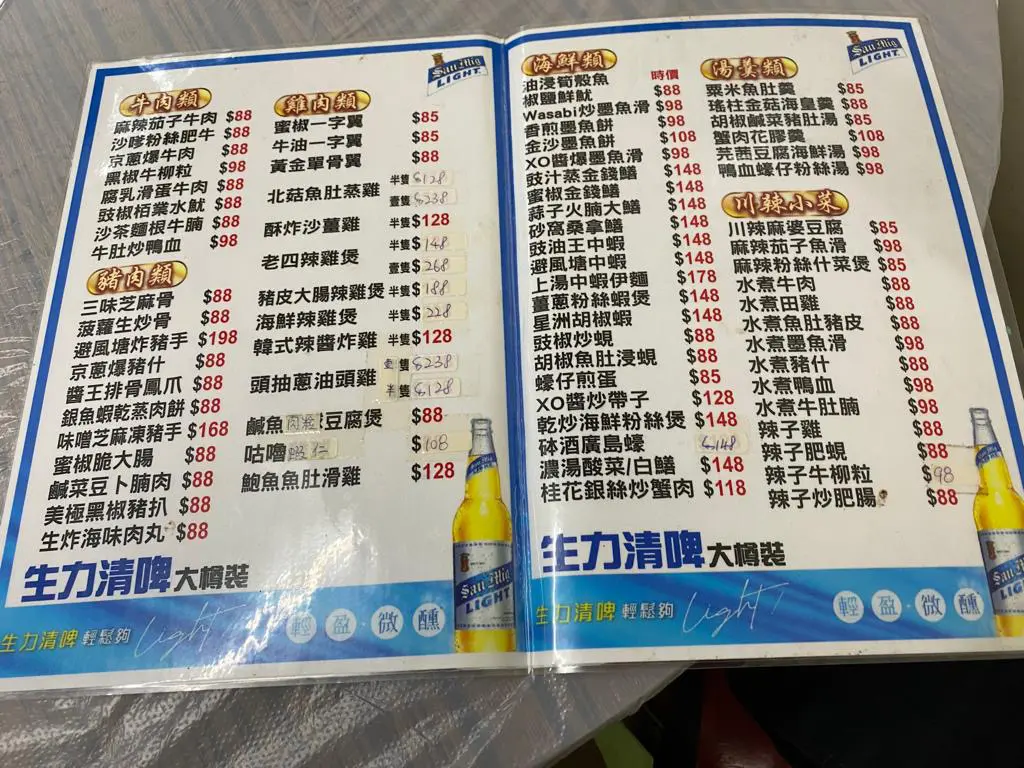 San Mig
LIGHT
牛肉類
麻辣茄子牛肉 $88
沙嗲粉絲肥牛 $88
京蔥爆牛肉 $88
黑椒牛柳粒 $98
腐乳滑蛋牛肉 $88
豉椒栢業水魷 $88
沙茶麵根牛腩 $88
牛肚炒鴨血 $98
豬肉類
三味芝麻骨 $88
菠蘿生炒骨 $88
避風塘炸豬手 $198
京蔥爆豬什 $88
醬王排骨鳳爪 $88
銀魚蝦乾蒸肉餅 $88
味噌芝麻凍豬手 $168
蜜椒脆大腸 $88
鹹菜豆卜腩肉 $88
美極黑椒豬扒 $88
生炸海味肉丸 $88
雞肉類
蜜椒一字翼 $85
牛油一字翼 $85
黃金單骨翼 $88
北菇魚肚蒸雞 半隻 $128
壹隻 $238
酥炸沙薑雞 半隻 $128
老四辣雞煲 半隻 $148
壹隻 $268
豬皮大腸辣雞煲 半隻 $188
海鮮辣雞煲 半隻 $228
韓式辣醬炸雞 半隻 $128
頭抽蔥油頭雞 壹隻 $238
半隻 $128
鹹魚肉粒豆腐煲 $88
咕嚕蝦仁 $108
鮑魚魚肚滑雞 $128
生力清啤 大樽裝
生力清啤 輕鬆夠 Light
輕盈·微醺
San Mig
LIGHT
San Mig
LIGHT
海鮮類
油浸筍殼魚 時價
椒鹽鮮魷 $88
Wasabi炒墨魚滑 $98
香煎墨魚餅 $98
金沙墨魚餅 $108
XO醬爆墨魚滑 $98
豉汁蒸金錢鱔 $148
蜜椒金錢鱔 $148
蒜子火腩大鱔 $148
砂窩桑拿鱔 $148
豉油王中蝦 $148
避風塘中蝦 $148
上湯中蝦伊麵 $178
薑蔥粉絲蝦煲 $148
星洲胡椒蝦 $148
豉椒炒蜆 $88
胡椒魚肚浸蜆 $88
蠔仔煎蛋 $85
XO醬炒帶子 $128
乾炒海鮮粉絲煲 $148
砵酒廣島蠔 $148
濃湯酸菜/白鱔 $148
桂花銀絲炒蟹肉 $118
湯羹類
粟米魚肚羹 $85
瑤柱金菇海皇羹 $88
胡椒鹹菜豬肚湯 $85
蟹肉花膠羹 $108
芫茜豆腐海鮮湯 $98
鴨血蠔仔粉絲湯 $98
川辣小菜
川辣麻婆豆腐 $85
麻辣茄子魚滑 $98
麻辣粉絲什菜煲 $85
水煮牛肉 $88
水煮田雞 $88
水煮魚肚豬皮 $88
水煮墨魚滑 $98
水煮豬什 $88
水煮鴨血 $98
水煮牛肚腩 $98
辣子雞 $88
辣子肥蜆 $88
辣子牛柳粒 $98
辣子炒肥腸 $88
生力清啤 大樽裝
生力清啤 輕鬆夠 Light
輕盈·微醺
San Mig
LIGHT